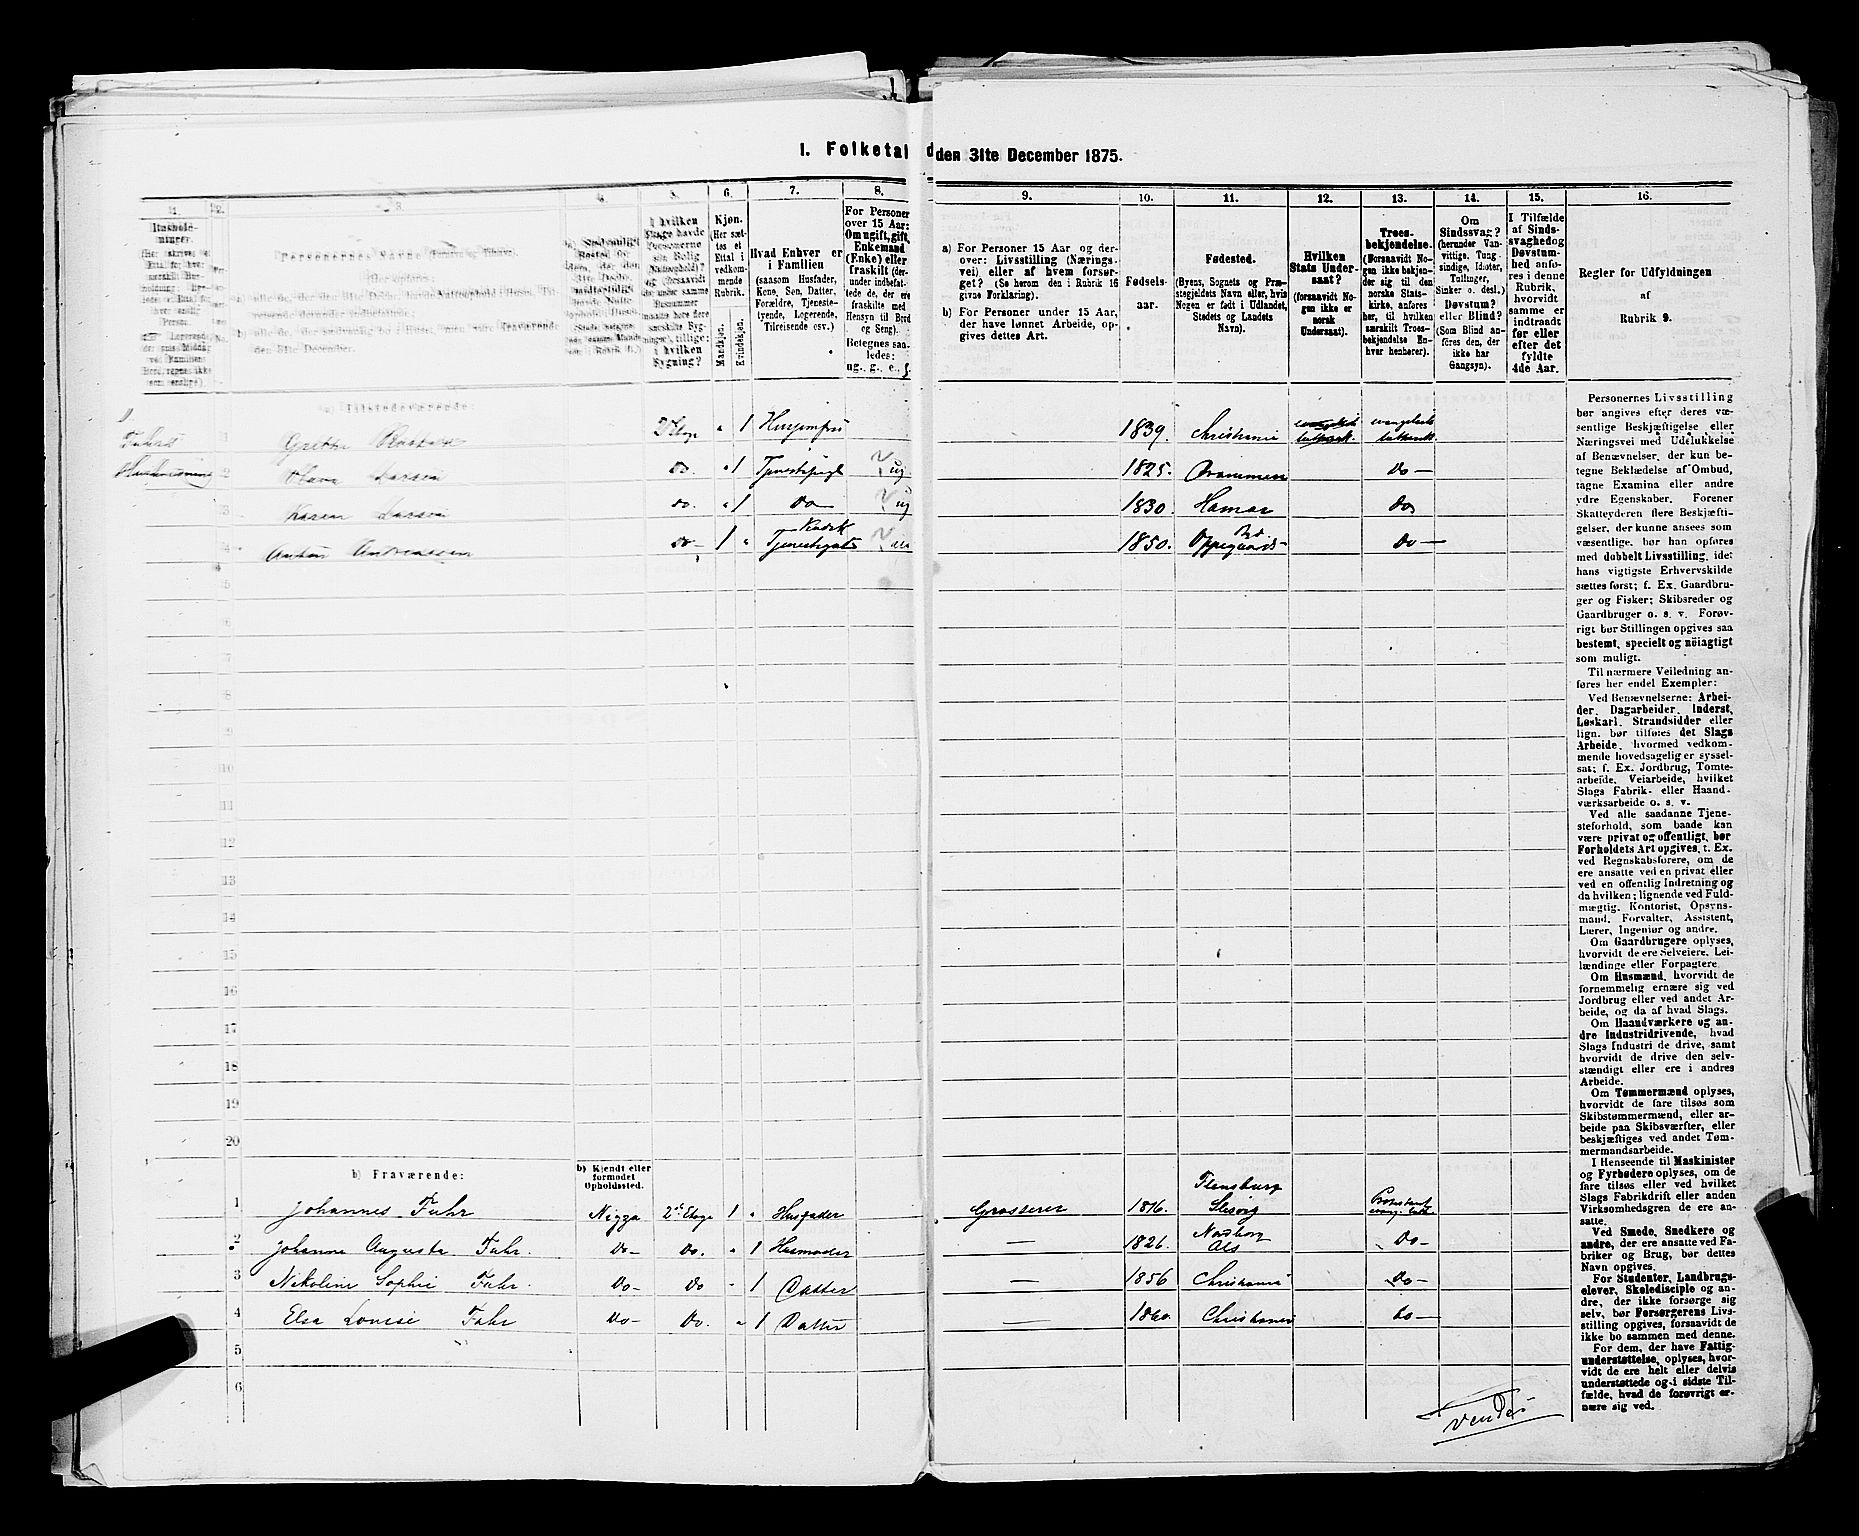 1. Folketal den 31te December 1875.
1. 2. 3. 4. 5. 6. 7. 8. 9. 10. 11. 12. 13. 14. 15. 16.
Personernes Navne
I hvilken
Etage havde
Personerne
sin Bolig
i hvilken
Bygning?
Kjøn.
(Her sæt-
tes et
Ettal i
vedkom-
mende
Rubrik.
Mandkjøn.
Kvindekjøn.
Hvad Enhver er
i Familien
(saasom Husfader,
Kone, Søn, Datter,
Forældre, Tjeneste-
tyende, Logerende,
Tilreisende osv.)
For Personer
over 15 Aar:
Om ugift, gift,
Enkemand
(Enke) eller
fraskilt (der-
under indbefat-
tede de, der ere
fraskilte med
Hensyn til Bord
og Seng).
Betegnes saa-
ledes:
ug., g., e., f.
a) For Personer 15 Aar og der-
over: Livsstilling (Nærings-
vei) eller af hvem forsør-
get? (Se herom den i Rubrik 16
givne Forklaring).
b) For Personer under 15 Aar,
der have lønnet Arbeide, op-
gives dettes Art.
Fødsels-
aar.
Fødested.
(Byens, Sognets og Præ-
stegjeldets Navn eller, hvis
Nogen er født i Udlandet,
Stedets og Landets
Navn).
Hvilken
Stats Under-
saat?
(forsaavidt No-
gen ikke er
norsk
Undersaat).
Troes-
bekjendelse.
(Forsaavidt No-
gen ikke bekjen-
der sig til den
norske Stats-
kirke, anføres
her, til hvilken
særskilt Troes-
bekjendelse En-
hver henhører).
Om
Sindssvag?
(herunder Van-
vittige, Tung-
sindige, Idioter,
Tullinger,
Sinker o. desl.)
Døvstum?
eller Blind?
(Som Blind an-
føres den, der
ikke har
Gangsyn).
I Tilfælde
af Sinds-
svaghed og
Døvstum-
hed anfø-
res i denne
Rubrik,
hvorvidt
samme er
indtraadt
før eller
efter det
fyldte
4de Aar.
Regler for Udfyldningen
af
Rubrik 9.
a) Tilstedeværende:
1 Grethe 2 Etage " 1 Husjomfru 1839. Christiania evangelisk luthersk evangelisk luthersk
2 Olava Larsen do. " 1 Tjenestepige ug 1825. Drammen do —
3 Karen Larsen do. " 1 do ug 1830. Hamar do
4 Anton Andreassen do — 1 " Tjenestegut 1850. Oppegaard do —
5
6
7
8
9
10
11
12
13
14
15
16
17
18
19
20
b) Fraværende:
b) Kjendt eller
formodet
Opholdssted.
1 Johannes Fuhr Nizza 2d Etage 1 " Husfader Grosserer 1816. Flensburg Slesvig
2 Johanne Augusta Fuhr. do — do. " 1 Husmoder — 1826. Nordborg Als do —
3 Nikoline Sophie Fuhr. do — do " 1 Datter — 1856 Christiania do —
4 Elsa Lovise Fuhr do — do. " 1 Datter — 1860. Christiania do —
5
6
Personernes Livsstilling
bør angives efter deres væ-
sentlige Beskjæftigelse eller
Næringsvei med Udelukkelse
af Benævnelser, der kun be-
tegne Beklædelse af Ombud,
tagne Examina eller andre
ydre Egenskaber. Forener
Skatteyderen flere Beskjæfti-
gelser, der kunne ansees som
væsentlige, bør han opføres
med dobbelt Livsstilling, idet
hans vigtigste Erhvervskilde
sættes først; f. Ex. Gaardbru-
ger og Fisker; Skibsreder og
Gaardbruger o. s. v. Forøv-
rigt bør Stillingen opgives saa
bestemt, specielt og nöiagtigt
som muligt.
Til nærmere Veiledning an-
føres her endel Exempler:
Ved Benævnelserne: Arbei-
der, Dagarbeider, Inderst,
Løskarl, Strandsidder eller
lign. bør tilføres det Slags
Arbeide, hvormed vedkom-
mende hovedsagelig er syssel-
sat; f. Ex. Jordbrug, Tomte-
arbeide, Veiarbeide, hvilket
Slags Fabrik- eller Haand-
værksarbeide o. s. v.
Ved alle saadanne Tjene-
steforhold, som baade kan
være privat og offentligt, bør
Forholdets Art opgives, t. Ex.
ved Regnskabsførere, om de
ere ansatte ved en privat eller
ved en offentlig Indretning og
da hvilken; lignende ved Fuld-
mægtig, Kontorist, Opsyns-
mand, Forvalter, Assistent,
Lærer, Ingeniør og andre.
Om Gaardbrugere oplyses,
hvorvidt de ere Selveiere, Lei-
lændinge eller Forpagtere.
Om Husmænd, hvorvidt de
fornemmelig ernære sig ved
Jordbrug eller ved andet Ar-
beide, og da af hvad Slags.
Om Haandværkere og an-
dre Industridrivende, hvad
Slags Industri de drive, samt
hvorvidt de drive den selv-
stændigt eller ere i andres
Arbeide.
Om Tømmermænd oplyses,
hvorvidt de fare tilsøs som
Skibstømmermænd, eller ar-
beide paa Skibsværfter, eller
beskjæftiges ved andet Tøm-
mermandsarbeide.
I Henseende til Maskinister
og Fyrbødere oplyses, om de
fare tilsøs eller ved hvilket
Slags Fabrikdrift eller anden
Virksomhedsgren de ere an-
satte.
Ved Smede, Snedkere og
andre, der ere ansatte ved Fa-
briker og Brug, bør dettes
Navn opgives.
For Studenter, Landbrugs-
elever, Skoledisciple og an-
dre, der ikke forsørge sig
selv, bør Forsørgerens Livs-
stilling opgives, forsaavidt de
ikke bo sammen med denne.
For dem, der have Fattig-
understøttelse, oplyses, hvor-
vidt de ere helt eller delvis
understøttede og i sidste Til-
fælde, hvad de forøvrigt er-
nære sig ved.